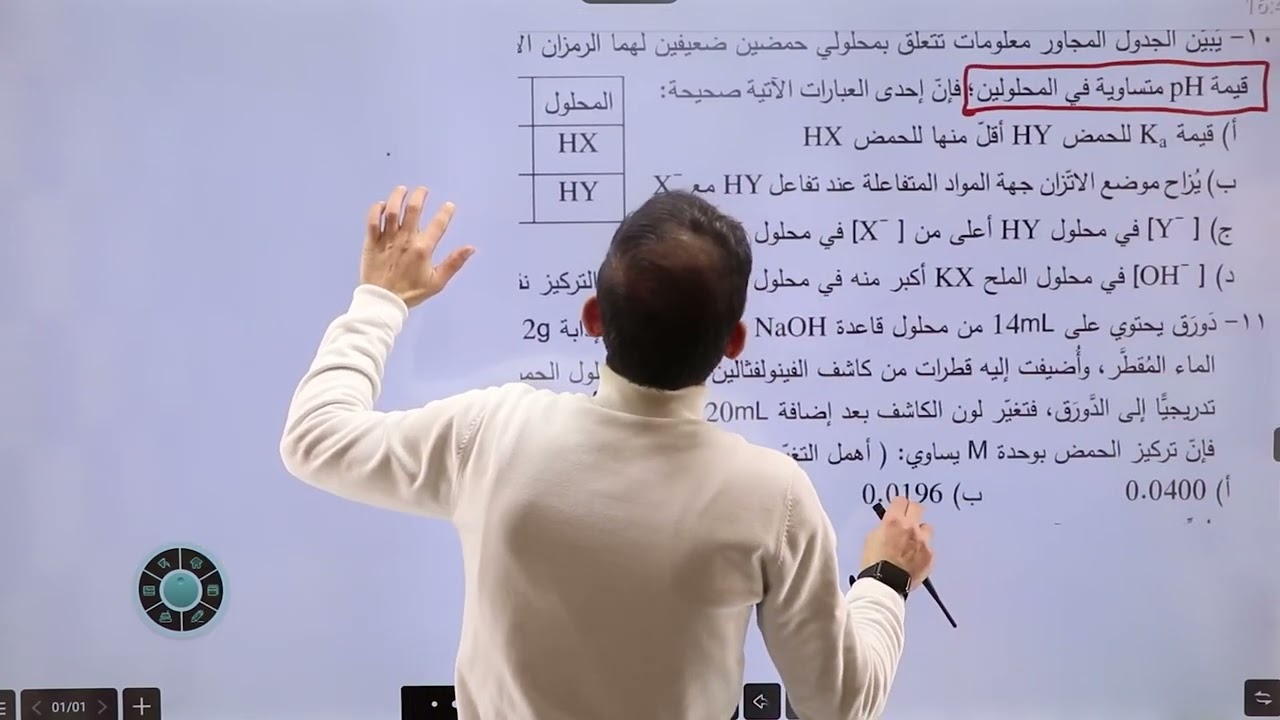 ١٠- يَبيَن الجدول المجاور معلومات تتعلق بمحلولي حمضين ضعيفين لهما الرمزان
قيمة pH متساوية في المحلولين؛ فإنّ إحدى العبارات الآتية صحيحة:
المحلول
HX
HY
أ) قيمة Kₐ للحمض HY أقلّ منها للحمض HX
ب) يُزاح موضع الاتّزان جهة المواد المتفاعلة عند تفاعل HY مع X⁻
ج) [Y⁻] في محلول HY أعلى من [X⁻] في محلول
د) [OH⁻] في محلول الملح KX أكبر منه في محلول التركيز
١١- دَورَق يحتوي على 14mL من محلول قاعدة NaOH 2g
الماء المُقطَّر، وأُضيفت إليه قطرات من كاشف الفينولفثالين
تدريجيًّا إلى الدَّورَق، فتغيّر لون الكاشف بعد إضافة 20mL
فإنّ تركيز الحمض بوحدة M يساوي: ( أهمل
أ) 0.0400 ب) 0.0196
01/01